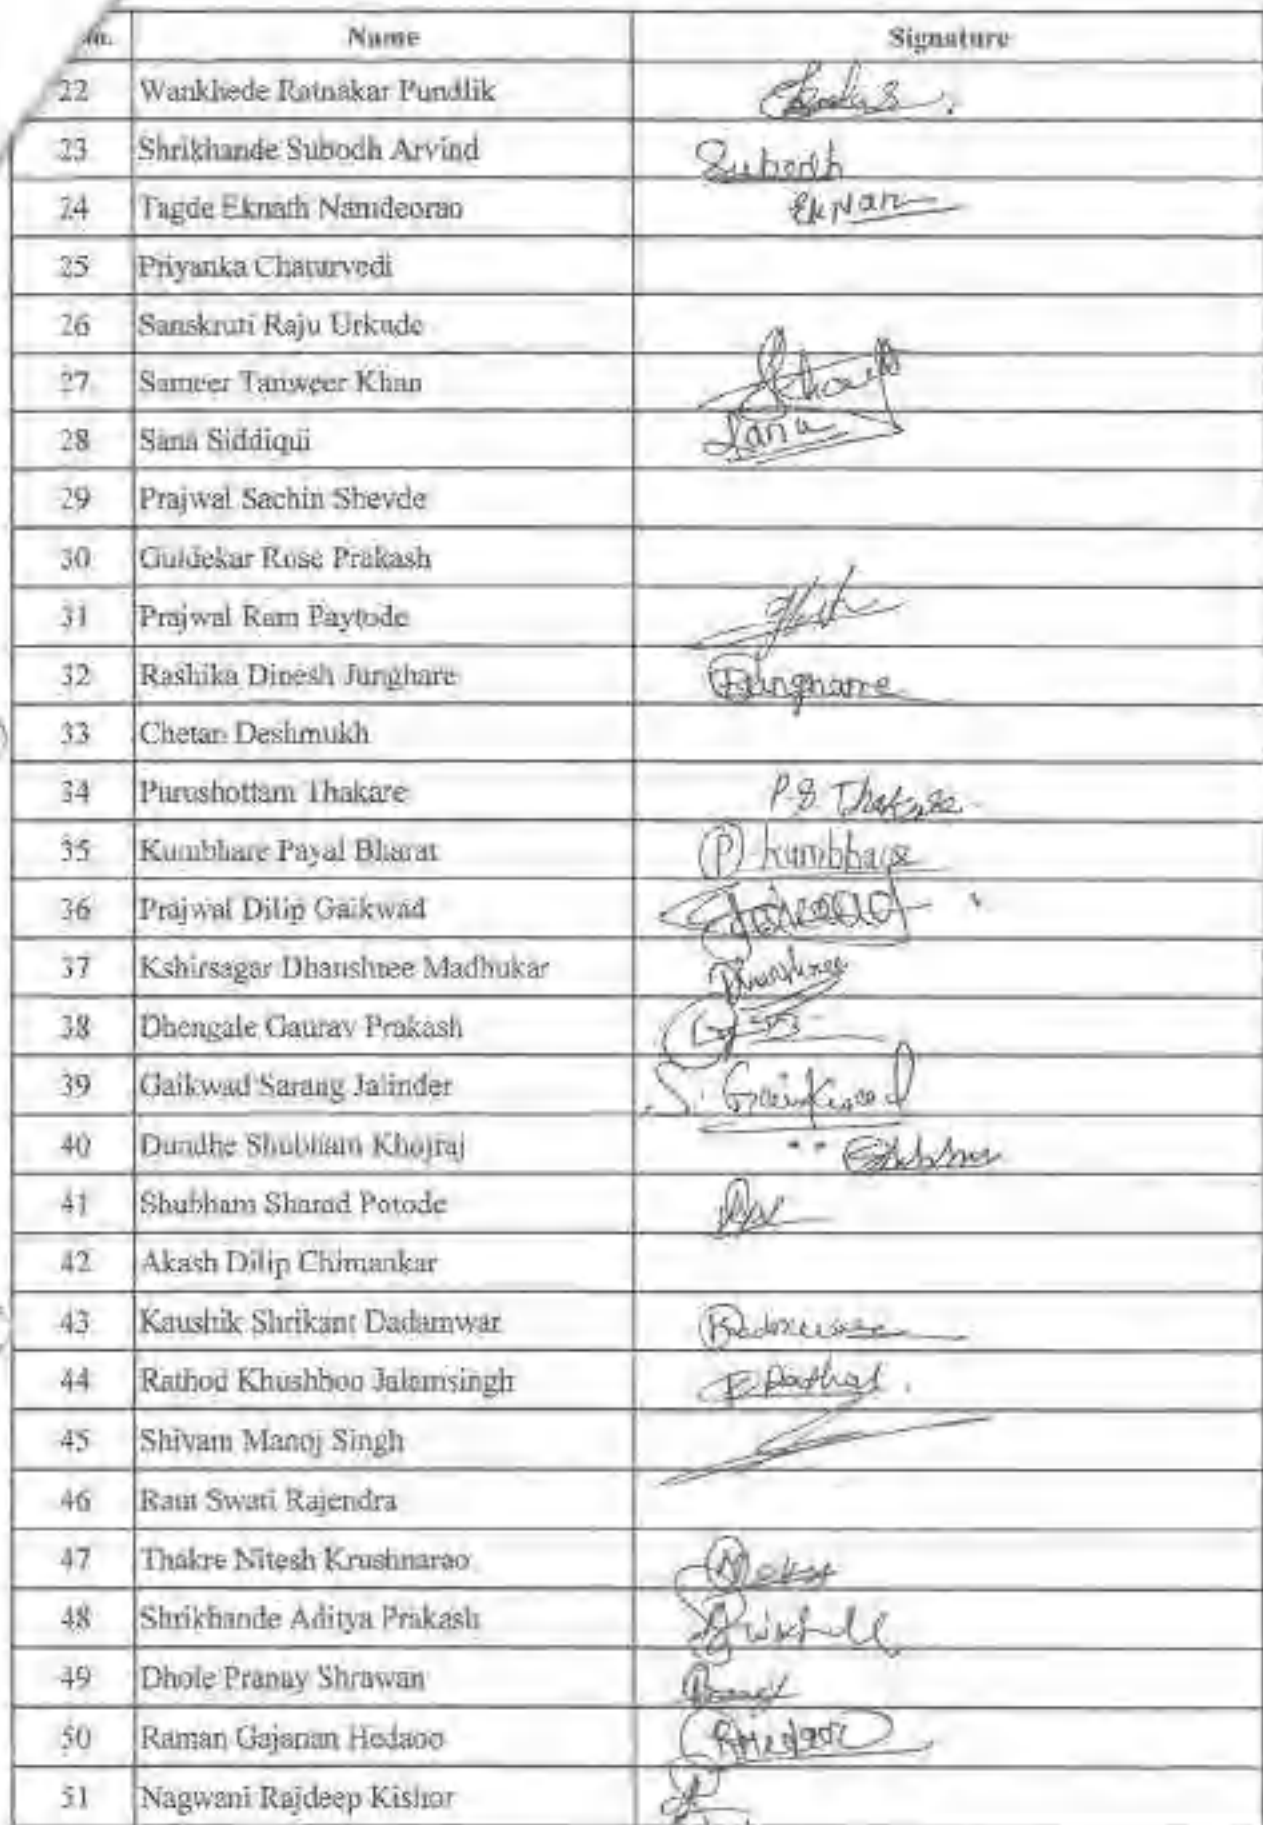 Name Signature
22 Wankhede Ratnakar Pundlik
23 Shrikhande Subodh Arvind Subodh
24 Tagde Eknath Namdeorao
25 Priyanka Chaturvedi
26 Sanskruti Raju Urkude
27 Sameer Tanweer Khan
28 Sana Siddiqui Sana
29 Prajwal Sachin Shevde
30 Guldekar Rose Prakash
31 Prajwal Ram Paytode
32 Rashika Dinesh Junghare
33 Chetan Deshmukh
34 Purushottam Thakare P.S. Thakare
35 Kumbhare Payal Bharat P. kumbhare
36 Prajwal Dilip Gaikwad
37 Kshirsagar Dhanshree Madhukar Dhanshree
38 Dhengale Gaurav Prakash
39 Gaikwad Sarang Jalinder S. Gaikwad
40 Dundhe Shubham Khojraj
41 Shubham Sharad Potode
42 Akash Dilip Chimankar
43 Kaushik Shrikant Dadamwar
44 Rathod Khushboo Jalamsingh
45 Shivam Manoj Singh
46 Raut Swati Rajendra
47 Thakre Nitesh Krushnarao
48 Shrikhande Aditya Prakash
49 Dhole Pranay Shrawan
50 Raman Gajanan Hedaoo RHedaoo
51 Nagwani Rajdeep Kishor